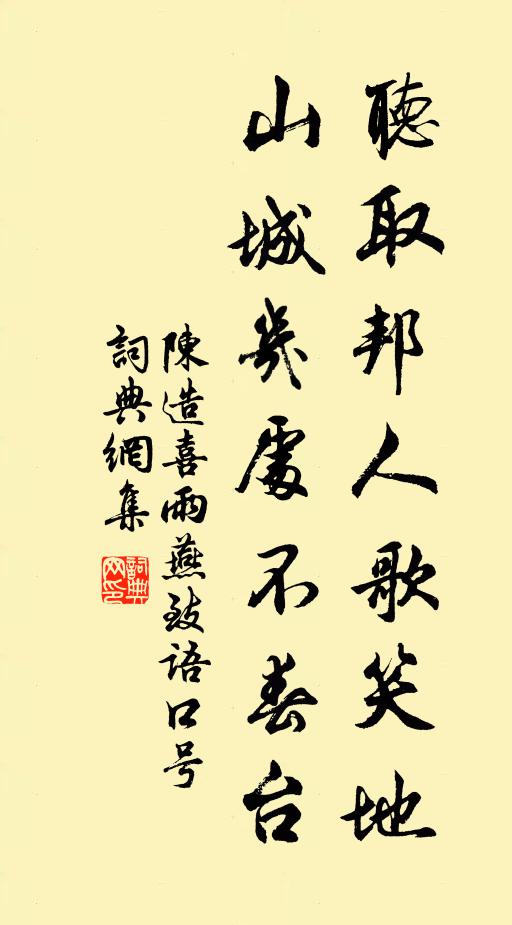 聽取邦人歌笑地
山城幾處不春台
陳造喜雨燕致語口号
詞典網集
詞典网印